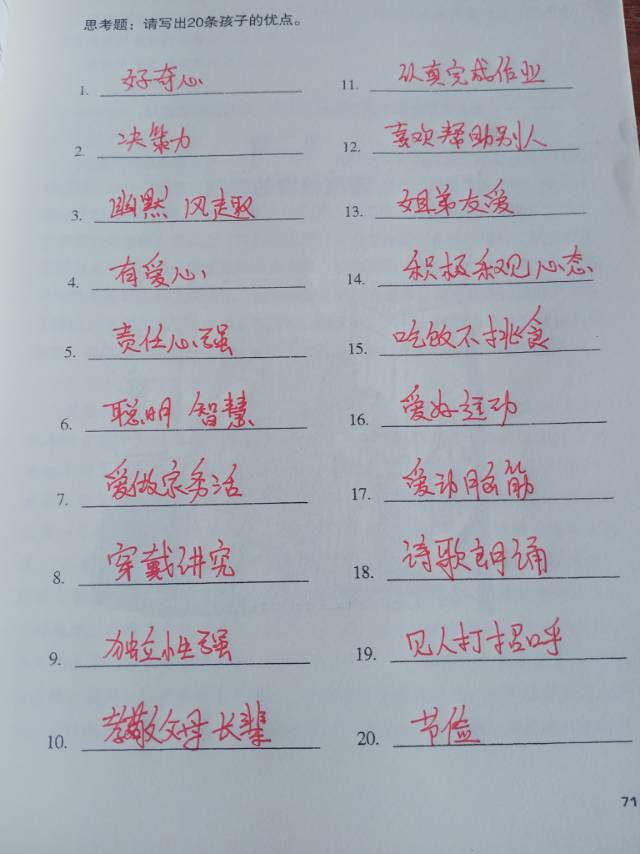 思考题：请写出20条孩子的优点。
1. 好奇心
2. 决策力
3. 幽默 风趣
4. 有爱心
5. 责任心强
6. 聪明 智慧
7. 爱做家务活
8. 穿戴讲究
9. 独立性强
10. 孝敬父母 长辈
11. 认真完成作业
12. 喜欢帮助别人
13. 姐弟友爱
14. 积极乐观心态
15. 吃饭不挑食
16. 爱好运动
17. 爱动脑筋
18. 诗歌朗诵
19. 见人打招呼
20. 节俭
71